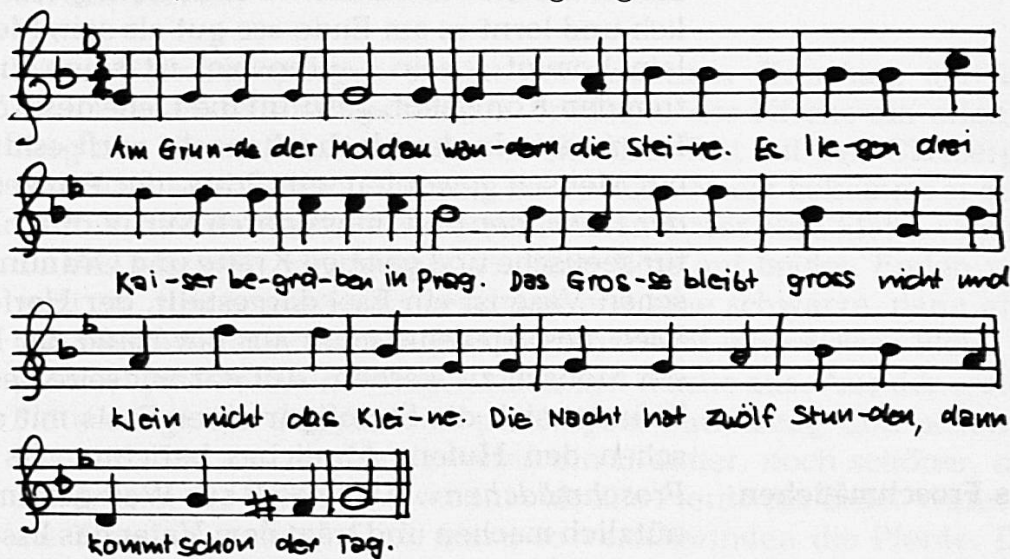 Am Grun-de der Moldau wan-dern die Stei-ne. Es lie-gen drei
Kai-ser be-gra-ben in Prag. Das Gros-se bleibt gross nicht und
klein nicht das Klei-ne. Die Nacht hat zwölf Stun-den, dann
kommt schon der Tag.